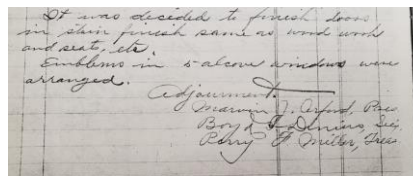 It was decided to finish doors
in stain finish same as wood work
and seats, etc.
Emblems in 5 alcove windows were
arranged.
Adjournment.
Marvin J. Pres
Boyd Sec
Perry F Miller, Trees